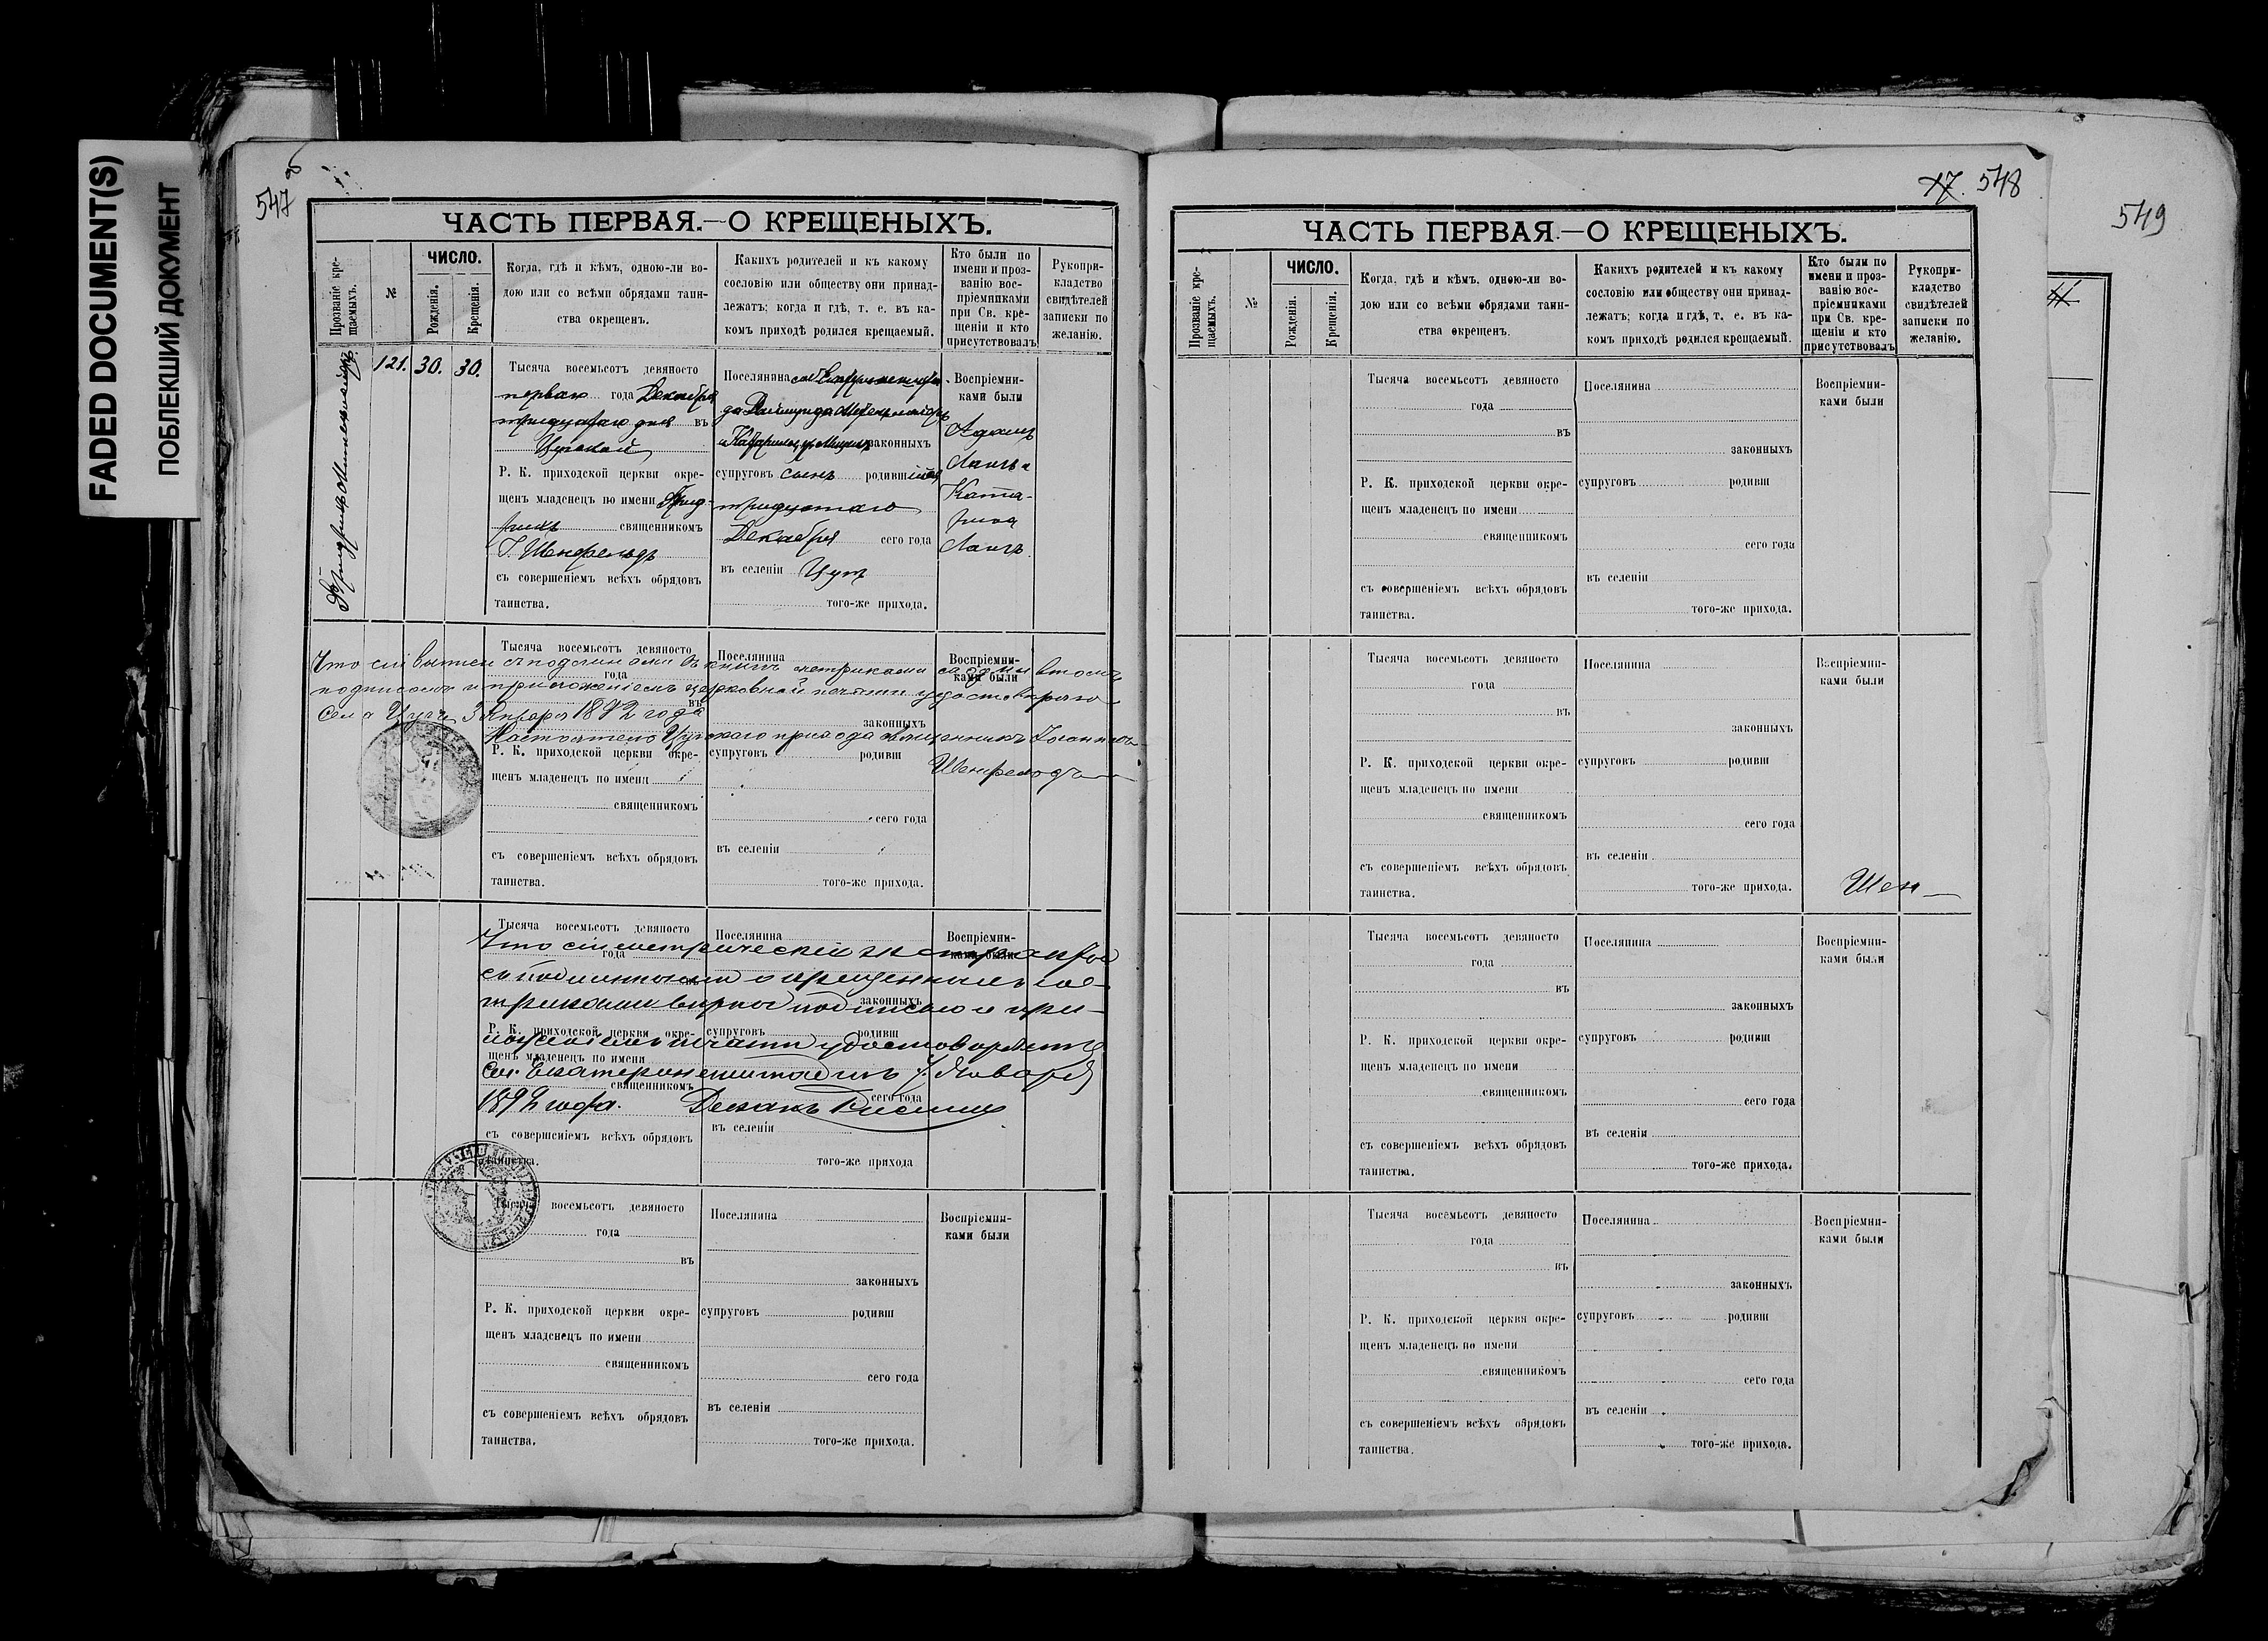 FADED DOCUMENT(S)
ПОБЛЕКШИЙ ДОКУМЕНТ
547
ЧАСТЬ ПЕРВАЯ.—О КРЕЩЕНЫХЪ.
Прозваніе кре-
щаемыхъ.
№
ЧИСЛО.
Рожденія.
Крещенія.
Когда, гдѣ и кѣмъ, одною-ли во-
дою или со всѣми обрядами таин-
ства окрещенъ.
Какихъ родителей и къ какому
сословію или обществу они принад-
лежатъ; когда и гдѣ, т. е. въ ка-
комъ приходѣ родился крещаемый.
Кто были по
имени и проз-
ванію вос-
пріемниками
при Св. кре-
щеніи и кто
присутствовалъ
Рукопри-
кладство
свидѣтелей
записки по
желанію.
Фридрихъ
121.
30.
30.
Тысяча восемьсотъ девяносто
перваго года Декабря
тридцатаго дня въ
Цугской
Р. К. приходской церкви окре-
щенъ младенецъ по имени Фрид-
рихъ священникомъ
І. Шенфельдъ
съ совершеніемъ всѣхъ обрядовъ
таинства.
Поселянина
законныхъ
супруговъ сынъ родившійся
тридцатаго
Декабря сего года
въ селеніи Цугъ
того-же прихода.
Воспріемни-
ками были
Адамъ
Лангъ и
Ката-
рина
Лангъ.
Тысяча восемьсотъ девяносто
года
въ
Р. К. приходской церкви окре-
щенъ младенецъ по имени
священникомъ
съ совершеніемъ всѣхъ обрядовъ
таинства.
Поселянина
законныхъ
супруговъ родивш
сего года
въ селеніи
того-же прихода.
Воспріемни-
ками были
Что сіи выписи съ подлинными въ книгѣ метриками сходны въ томъ
подписомъ и приложеніемъ церковной печати удостовѣряю
Село Цугъ 3 Января 1892 года
Настоятель Цугскаго прихода Іоаннъ
Шенфельдъ
Тысяча восемьсотъ девяносто
года
законныхъ
Р. К. приходской церкви окре-
щенъ младенецъ по имени
священникомъ
съ совершеніемъ всѣхъ обрядовъ
таинства.
Поселянина
супруговъ родивш
сего года
въ селеніи
того-же прихода
Воспріемни-
ками были
Что сіи метрическіи
съ подлинными о крещенныхъ ме-
триками вѣрны подписью и при-
ложеніемъ печати удостовѣряется
Сел. Екатериненштадтъ Января
1892 года. Деканъ
Тысяча восемьсотъ девяносто
года
въ
Р. К. приходской церкви окре-
щенъ младенецъ по имени
священникомъ
съ совершеніемъ всѣхъ обрядовъ
таинства.
Поселянина
законныхъ
супруговъ родивш
сего года
въ селеніи
того-же прихода.
Воспріемни-
ками были
17. 548
ЧАСТЬ ПЕРВАЯ—О КРЕЩЕНЫХЪ.
Прозваніе кре-
щаемыхъ.
№
ЧИСЛО.
Рожденія.
Крещенія.
Когда, гдѣ и кѣмъ, одною-ли во-
дою или со всѣми обрядами таин-
ства окрещенъ.
Какихъ родителей и къ какому
сословію или обществу они принад-
лежатъ; когда и гдѣ, т. е. въ ка-
комъ приходѣ родился крещаемый.
Кто были по
имени и проз-
ванію вос-
пріемниками
при Св. кре-
щеніи и кто
присутствовалъ
Рукопри-
кладство
свидѣтелей
записки по
желанію.
Тысяча восемьсотъ девяносто
года
въ
Р. К. приходской церкви окре-
щенъ младенецъ по имени
священникомъ
съ совершеніемъ всѣхъ обрядовъ
таинства.
Поселянина
законныхъ
супруговъ родивш
сего года
въ селеніи
того-же прихода.
Воспріемни-
ками были
Тысяча восемьсотъ девяносто
года
въ
Р. К. приходской церкви окре-
щенъ младенецъ по имени
священникомъ
съ совершеніемъ всѣхъ обрядовъ
таинства.
Поселянина
законныхъ
супруговъ родивш
сего года
въ селеніи
того-же прихода.
Воспріемни-
ками были
Шен
Тысяча восемьсотъ девяносто
года
въ
Р. К. приходской церкви окре-
щенъ младенецъ по имени
священникомъ
съ совершеніемъ всѣхъ обрядовъ
таинства.
Поселянина
законныхъ
супруговъ родивш
сего года
въ селеніи
того-же прихода.
Воспріемни-
ками были
Тысяча восемьсотъ девяносто
года
въ
Р. К. приходской церкви окре-
щенъ младенецъ по имени
священникомъ
съ совершеніемъ всѣхъ обрядовъ
таинства.
Поселянина
законныхъ
супруговъ родивш
сего года
въ селеніи
того-же прихода.
Воспріемни-
ками были
549